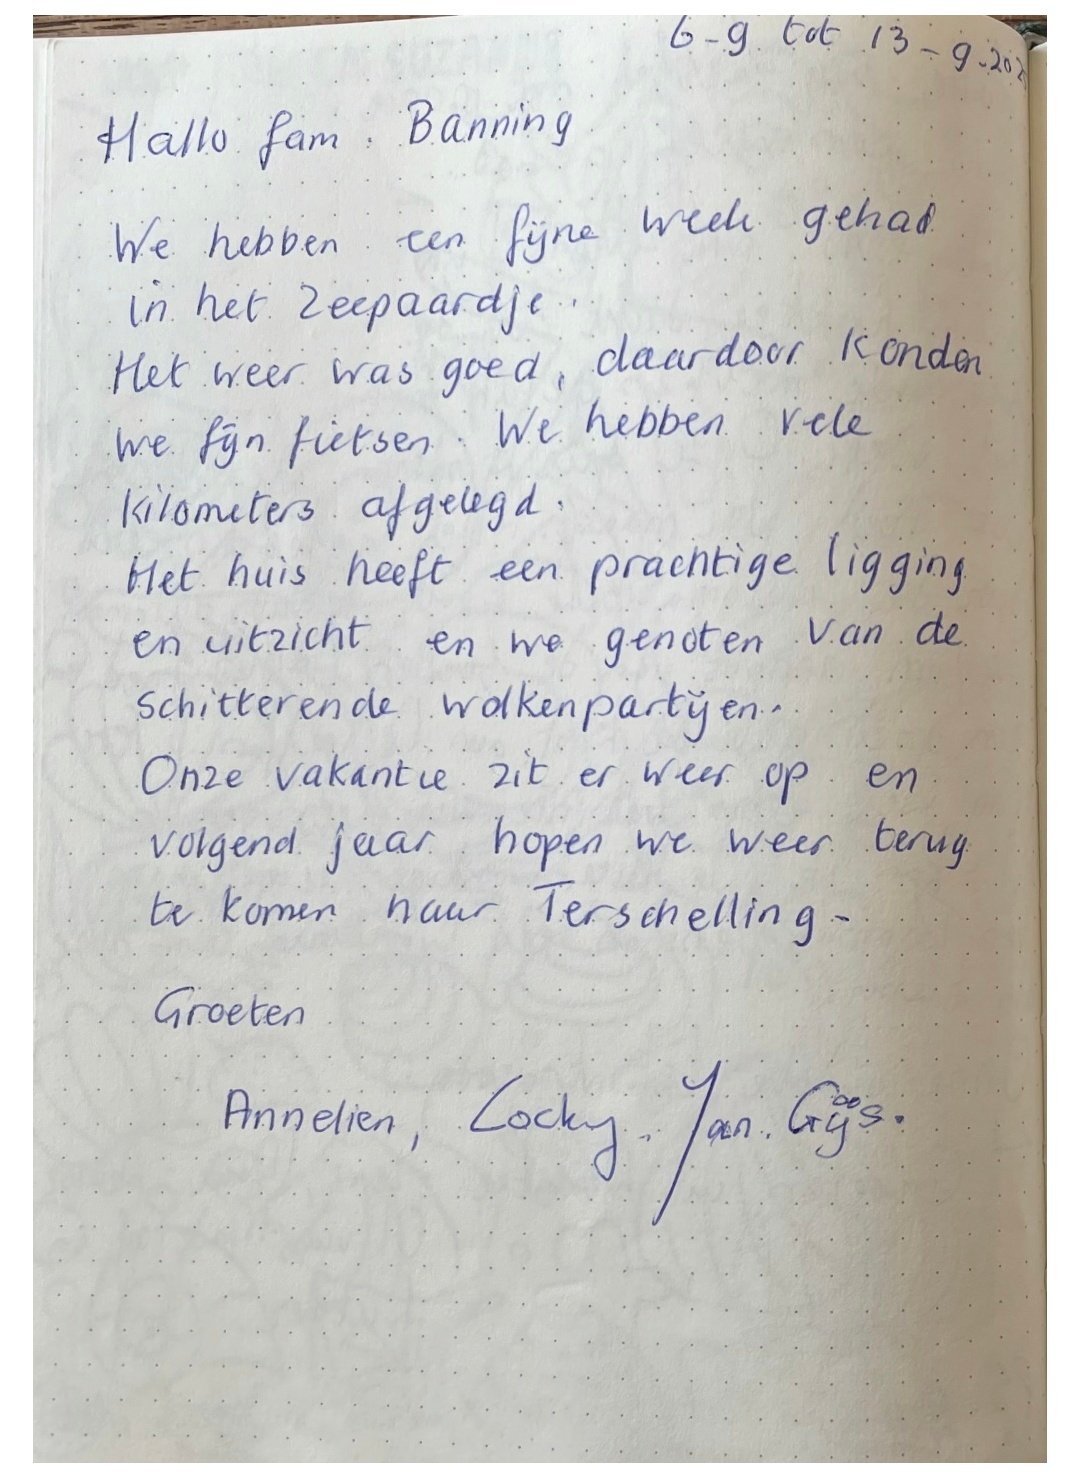 6-9 tot 13-9-202
Hallo fam. Banning
We hebben een fijne week gehad
in het Zeepaardje.
Het weer was goed, daardoor konden
we fijn fietsen. We hebben vele
kilometers afgelegd.
Het huis heeft een prachtige ligging
en uitzicht en we genoten van de
schitterende wolkenpartijen.
Onze vakantie zit er weer op en
volgend jaar hopen we weer terug
te komen naar Terschelling-
Groeten
Annelien, Locky. Jan. Gijs.